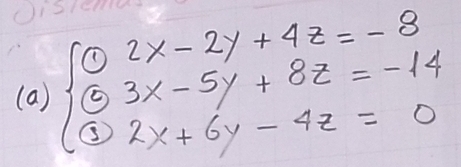 Sistema
① 2x - 2y + 4z = - 8
(a) ② 3x - 5y + 8z = - 14
③ 2x + 6y - 4z = 0